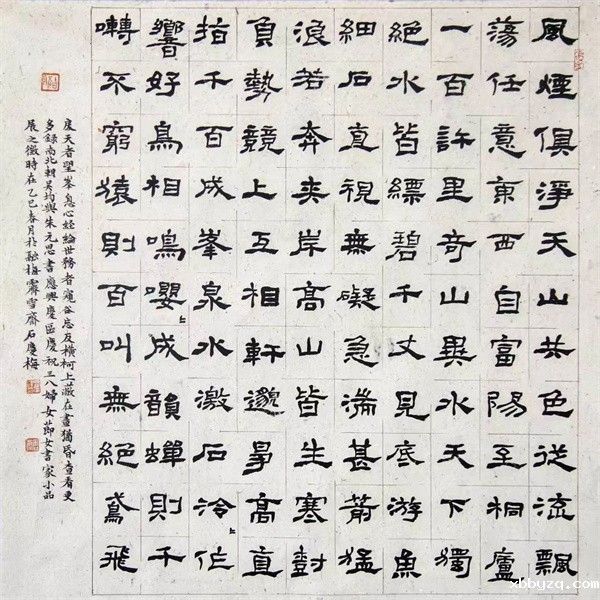 風煙俱淨天山共色從流飄
蕩任意東西自富陽至桐廬
一百許里奇山異水天下獨
絕水皆縹碧千丈見底游魚
細石直視無礙急湍甚箭猛
浪若奔夾岸高山皆生寒樹
負勢競上互相軒邈爭高直
指千百成峯泉水激石泠作
響好鳥相鳴嚶成韻蟬則千
囀不窮猿則百叫無絕鳶飛
戾天者望峯息心經綸世務者窺谷忘反橫柯上蔽在晝猶昏查看更
多錄南北朝吳均與朱元思書應興慶區慶祝三八婦女節女書家小品
展之徵時在乙巳春月於融梅霽雪齋石慶梅
xbbyzq.com